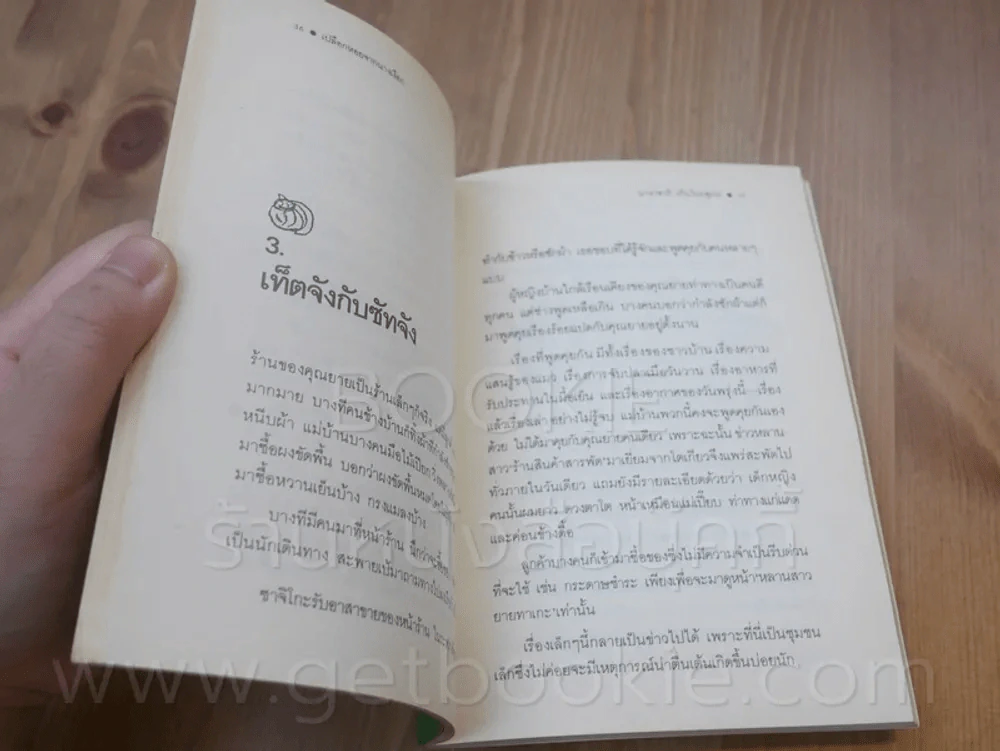 36 ● เปลือกหอยจากนางเงือก
3.
เท็ตจังกับซัทจัง
ร้านของคุณยายเป็นร้านเล็กๆก็จริง
มากมาย บางทีคนข้างบ้านก็
หนีบผ้า แม่บ้านบางคนมือไม้เปียก
มาซื้อผงขัดพื้น บอกว่าผงขัดพื้น
มาซื้อหวานเย็นบ้าง กรงแมลงบ้าง
บางทีมีคนมาที่หน้าร้าน นึกว่าจะซื้อ
เป็นนักเดินทาง สะพายเป้มาถามทาง
ซาจิโกะรับอาสาขายของหน้าร้าน
ตำกับข้าวหรือซักผ้า เธอชอบที่ได้รู้จักและพูดคุยกับคนหลายๆ
แบบ
ผู้หญิงบ้านใกล้เรือนเคียงของคุณยายท่าทางเป็นคนดี
ทุกคน แต่ช่างพูดเหลือเกิน บางคนบอกว่ากำลังซักผ้าแต่ก็
มาพูดคุยเรื่องร้อยแปดกับคุณยายอยู่ตั้งนาน
เรื่องที่พูดคุยกัน มีทั้งเรื่องของชาวบ้าน เรื่องความ
แสนรู้ของแมว เรื่องการจับปลาเมื่อวันวาน เรื่องอาหารที่
รับประทานในมื้อเย็น และเรื่องอากาศของวันพรุ่งนี้ เรื่อง
แล้วเรื่องเล่า อย่างไม่รู้จบ แม่บ้านพวกนี้คงจะพูดคุยกันเอง
ด้วย ไม่ได้มาคุยกับคุณยายคนเดียว เพราะฉะนั้น ข่าวหลาน
สาว'ร้านสินค้าสารพัด'มาเยี่ยมจากโตเกียวจึงแพร่สะพัดไป
ทั่วภายในวันเดียว แถมยังมีรายละเอียดด้วยว่า เด็กหญิง
คนนั้นผมยาว ดวงตาโต หน้าเหมือนแม่เปี๊ยบ ท่าทางแก่แดด
และค่อนข้างดื้อ
ลูกค้าบางคนก็เข้ามาซื้อของซึ่งไม่มีความจำเป็นรีบด่วน
ที่จะใช้ เช่น กระดาษชำระ เพียงเพื่อจะมาดูหน้า'หลานสาว
ยายทาเกะ'เท่านั้น
เรื่องเล็กๆนี้กลายเป็นข่าวไปได้ เพราะที่นี่เป็นชุมชน
เล็กซึ่งไม่ค่อยจะมีเหตุการณ์น่าตื่นเต้นเกิดขึ้นบ่อยนัก
BOOKIE
ร้านหนังสือบุ๊คกี้
www.getbookie.com